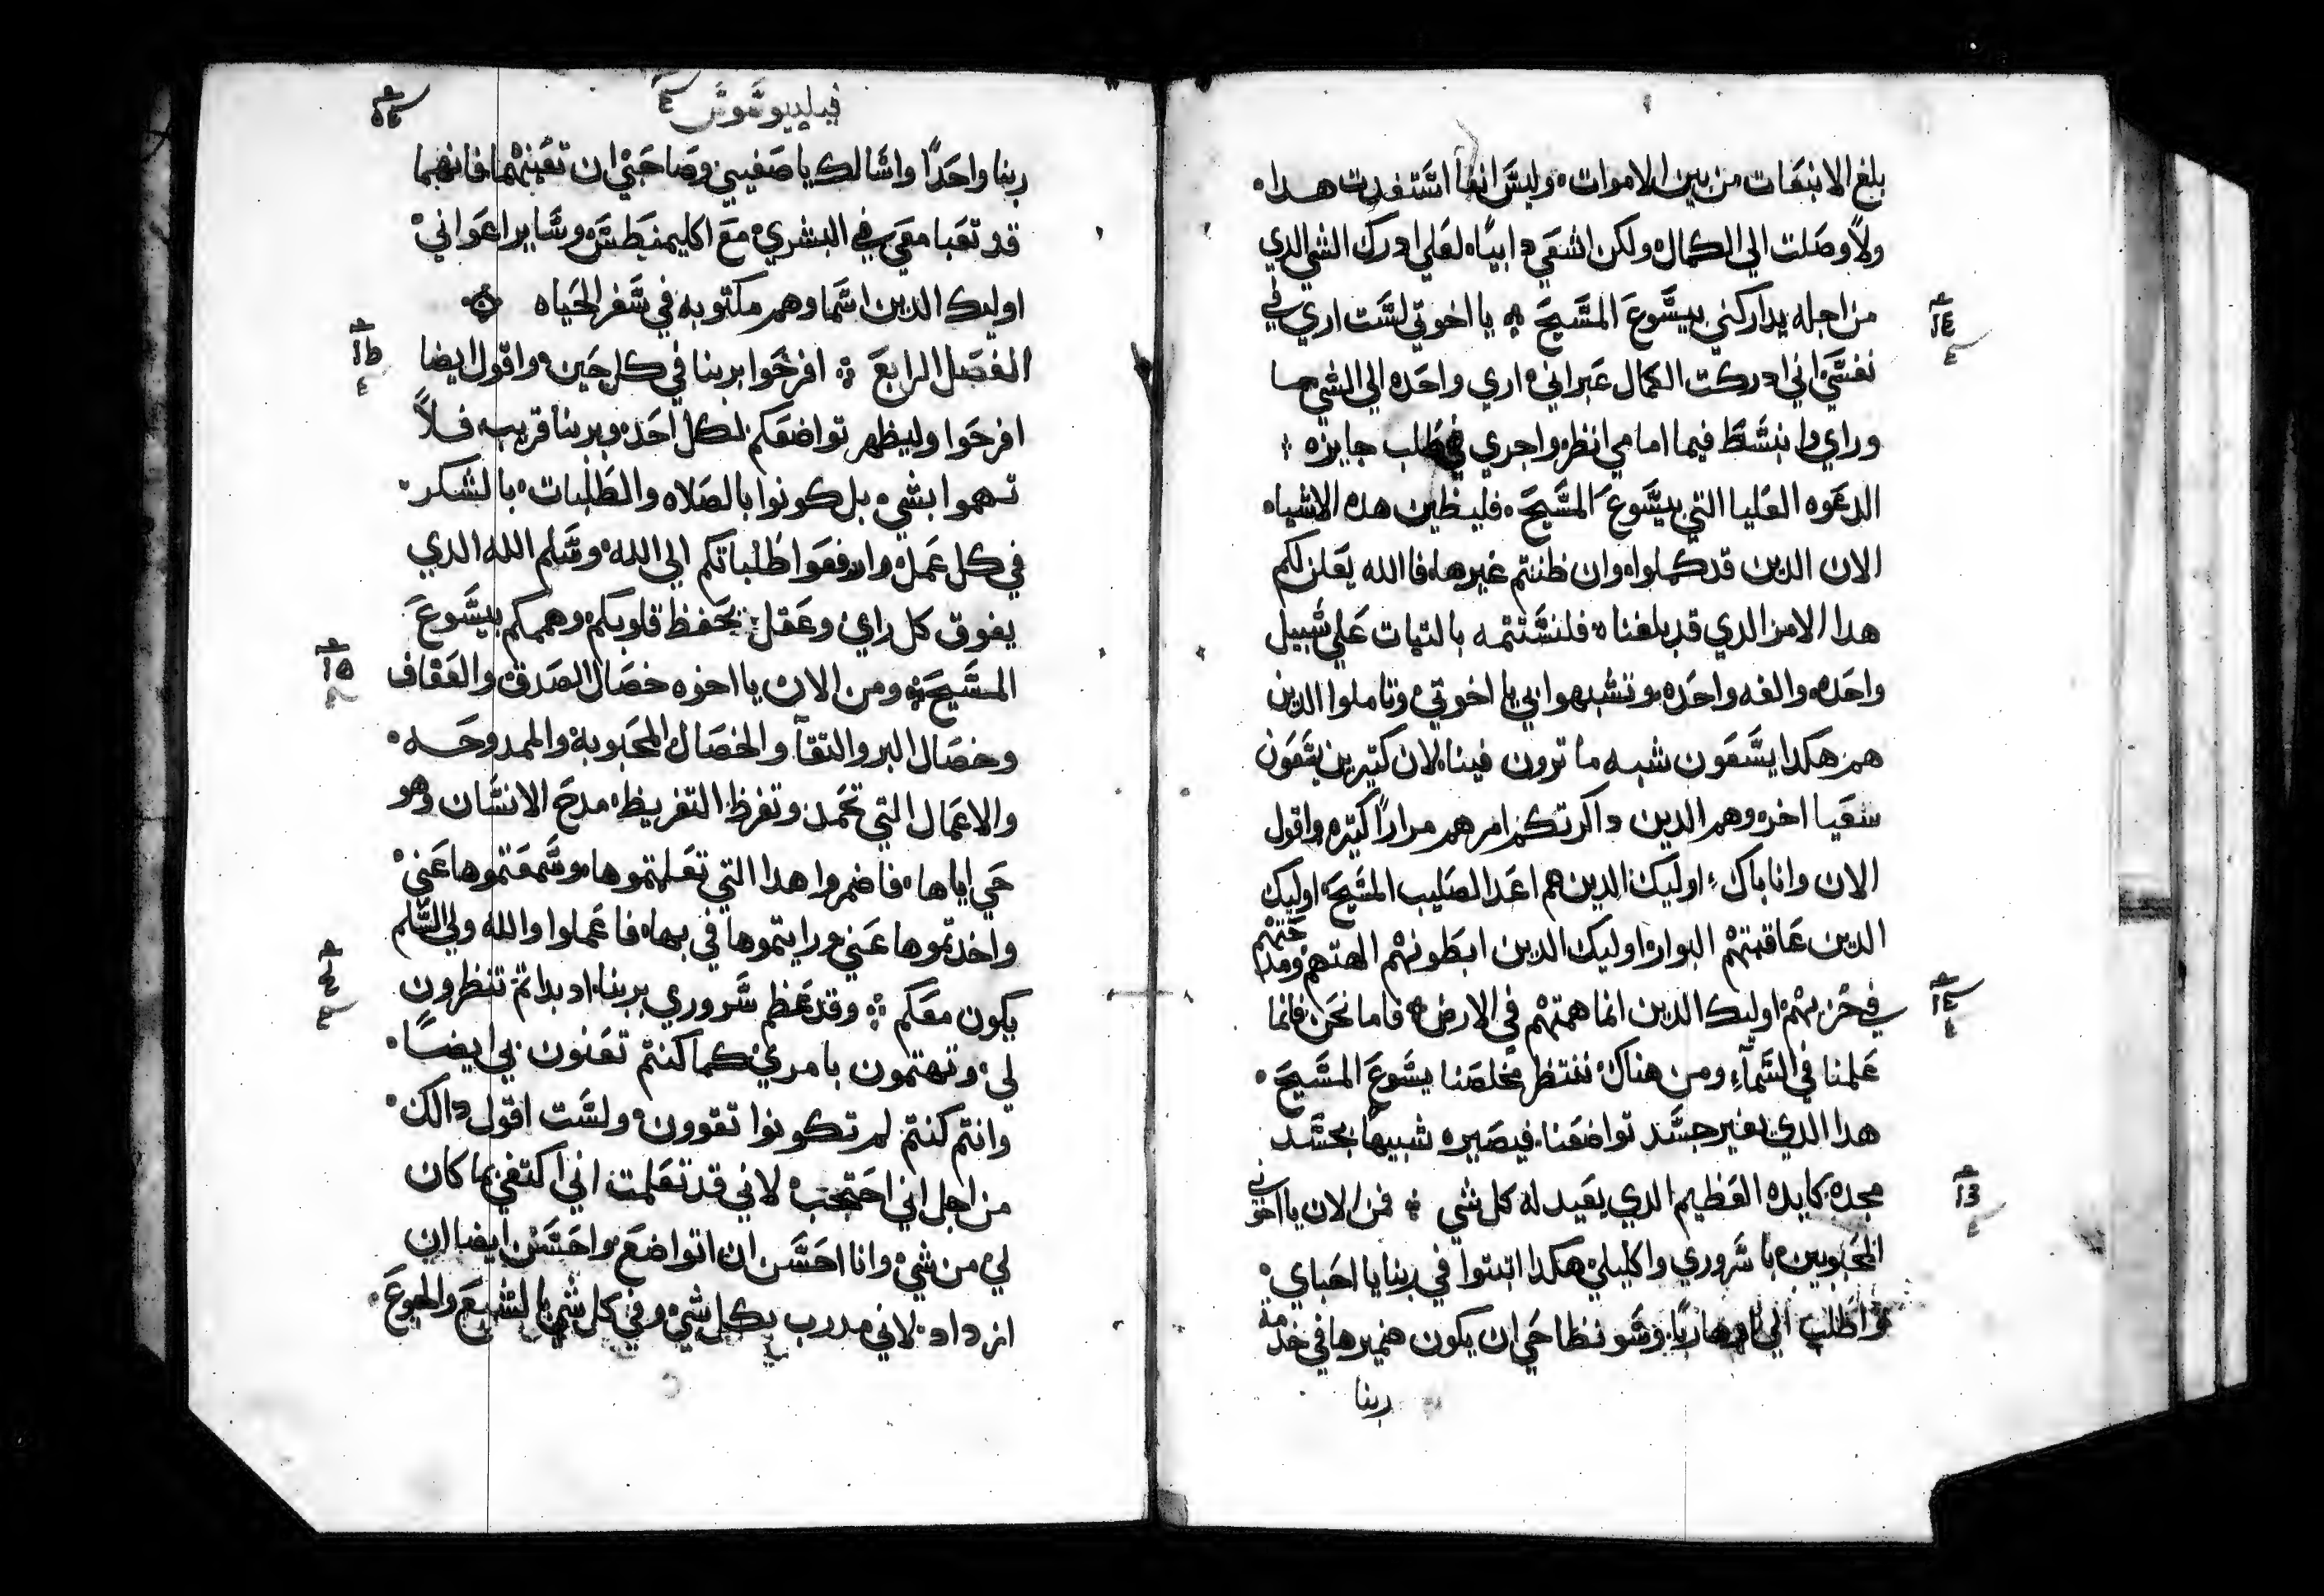 بلغ الانبعات من بين الاموات وليس انفا استفدت هدا
ولا وصلت الي الكمال ولكن اسعي دايبا لعلي ادرك الشي الدي
من اجله يداركني بيسوع المسيح يا اخوتي لست اري في
نفسي اني ادركت الكمال غير اني اري واحده الي الشي ما
وراي وانبسط فيما امامي انظر واجري في طلب جايزه
الدعوه العليا التي بيسوع المسيح فليظن هده الاشياء
الان الدين قد كملوا وان ظنتم غيرها فالله يعلن لكم
هدا الامر الدي قد بلغنا فلنستتمه بالتبات علي سبيل
واحده والفه واحده وتشبهوا بي يا اخوتي وتاملوا الدين
هم هكدا يسعون شبه ما ترون فينا لان كتيرين يسعون
سعيا اخر وهم الدين داكرتكم امرهم مرارا كتيره واقول
الان وانا باك اوليك الدين هم اعدا الصليب المسيح اوليك
الدين عاقبتهم البوار اوليك الدين ابطونهم الهتهم ومدحتهم
في خزيهم اوليك الدين انما همتهم في الارض فاما نحن فانما
علمنا في السماء ومن هناك ننتظر مخلصنا يسوع المسيح
هدا الدي يغير جسد تواضعنا فيصيره شبيها بجسد
مجده كايده العظيم الدي يعيد له كل شي فمن الان يا اخوتي
المحبوبين يا سروري واكليلي هكدا اتبتوا في ربنا يا احباي
واطلب الي اوهاديا وسونطاخي ان يكون ضميرها في خدمة
ربنا
فيليبوسوس ٤
ربنا واحدا واسالك يا صفيي وصاحبي ان تعينهما فانهما
قد تعبا معي في البشري مع اكليمنطس وساير اعواني
اوليك الدين اسماوهم مكتوبه في سفر الحياه
الفصل الرابع افرحوا بربنا في كل حين واقول ايضا
افرحوا وليظهر تواضعكم لكل احد وبربنا قريب فلا
تهموا بشي بل كونوا بالصلاه والطلبات بالشكر
في كل عمل وارفعوا طلباتكم الي الله وسلم الله الدي
يفوق كل راي وعقل يحفظ قلوبكم وهممكم بيسوع
المسيح ومن الان يا اخوه خصال الصدق والعفاف
وخصال البر والتقا والخصال المحبوبه والممدوحه
والاعمال التي تحمد وتفرظ التفريظ مدح الانسان وهو
حي اياها فاضمروا هدا التي تعلمتموها وسمعتموها عني
واخدتموها عني ورايتموها في بها فاعملوا والله ولي السلم
يكون معكم وقد عظم سروري بربنا اد بداتم تنظرون
لي وتهتمون بامري كما كنتم تعنون بي ايضا
وانتم كنتم لم تكونوا تقوون ولست اقول دالك
من اجل اني احتجب لاني قد تعلمت اني اكتفي بما كان
لي من شي وانا احسن ان اتواضع واحسن ايضا ان
ازداد لاني مدرب بكل شي وفي كل شي بالشبع والجوع